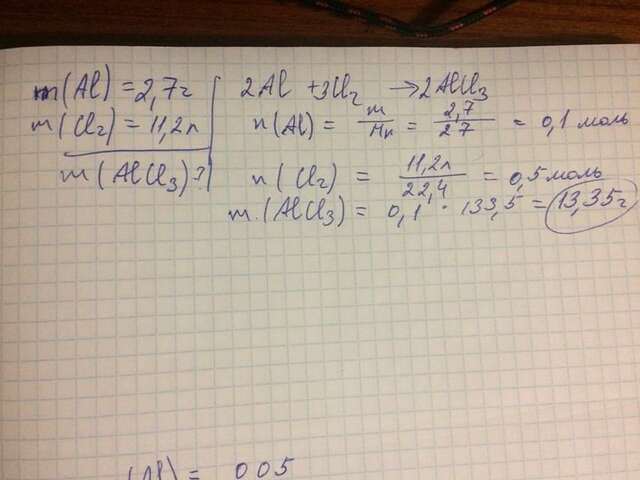 m(Al) = 2,7г
m(Cl₂) = 11,2л
m(AlCl₃)?
2Al + 3Cl₂ → 2AlCl₃
n(Al) = m/Mr = 2,7/27 = 0,1 моль
n(Cl₂) = 11,2л/22,4 = 0,5 моль
m.(AlCl₃) = 0,1 · 133,5 = 13,35г
(Al) = 005